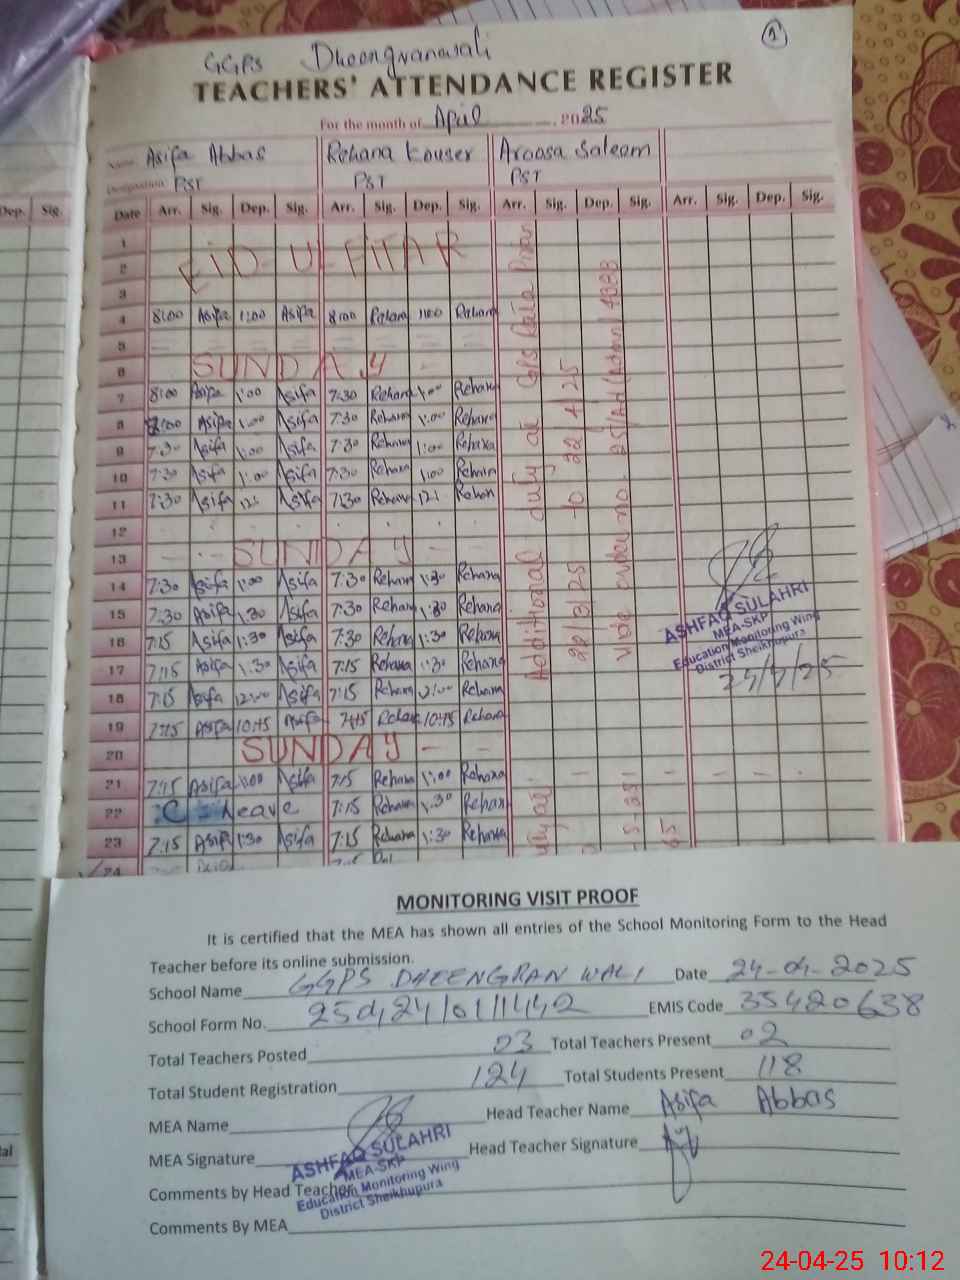 1
GGPS Dheengranwali
TEACHERS' ATTENDANCE REGISTER
For the month of April 2025
Name Asifa Abbas Rehana Kouser Aroosa Saleem
Designation PST PST PST
Dep. Sig. Date Arr. Sig. Dep. Sig. Arr. Sig. Dep. Sig. Arr. Sig. Dep. Sig. Arr. Sig. Dep. Sig.
1
2 EID-U-FITAR
3
4 8:00 Asifa 1:00 Asifa 8:00 Rehana 1:00 Rehana
5
6 SUNDAY
7 8:00 Asifa 1:00 Asifa 7:30 Rehana 1:00 Rehana
8 8:00 Asifa 1:00 Asifa 7:30 Rehana 1:00 Rehana
9 7:30 Asifa 1:00 Asifa 7:30 Rehana 1:00 Rehana
10 7:30 Asifa 1:00 Asifa 7:30 Rehana 1:00 Rehana
11 7:30 Asifa Asifa 7:30 Rehana Rehan
12
13 SUNDAY
14 7:30 Asifa 1:00 Asifa 7:30 Rehana 1:30 Rehana
15 7:30 Asifa 1:30 Asifa 7:30 Rehana 1:30 Rehana
16 7:15 Asifa 1:30 Asifa 7:30 Rehana 1:30 Rehana
17 7:15 Asifa 1:30 Asifa 7:15 Rehana 1:30 Rehana
18 7:15 Asifa 12:00 Asifa 7:15 Rehana 12:00 Rehana
19 7:15 Asifa 10:45 Asifa 7:15 Rehana 10:45 Rehana
20 SUNDAY
21 7:15 Asifa 1:00 Asifa 7:15 Rehana 1:00 Rehana
22 C Leave 7:15 Rehana 1:30 Rehana
23 7:15 Asifa 1:30 Asifa 7:15 Rehana 1:30 Rehana
24
Additional duty at GPS
to 22/4/25
vide order no.
ASHFAQ SULAHRI
MEA-SKP
Education Monitoring Wing
District Sheikhupura
MONITORING VISIT PROOF
It is certified that the MEA has shown all entries of the School Monitoring Form to the Head
Teacher before its online submission.
School Name GGPS DHEENGRANWALI Date 24-04-2025
School Form No. EMIS Code 35420638
Total Teachers Posted 03 Total Teachers Present 02
Total Student Registration 124 Total Students Present 118
MEA Name Head Teacher Name Asifa Abbas
MEA Signature Head Teacher Signature
ASHFAQ SULAHRI
MEA-SKP
Education Monitoring Wing
District Sheikhupura
Comments by Head Teacher
Comments By MEA
24-04-25 10:12